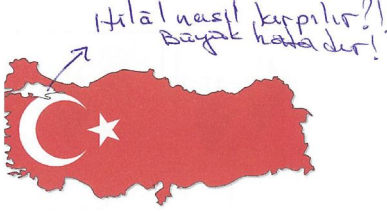 Hilâl nasıl kırpılır?!
Büyük hatadır!